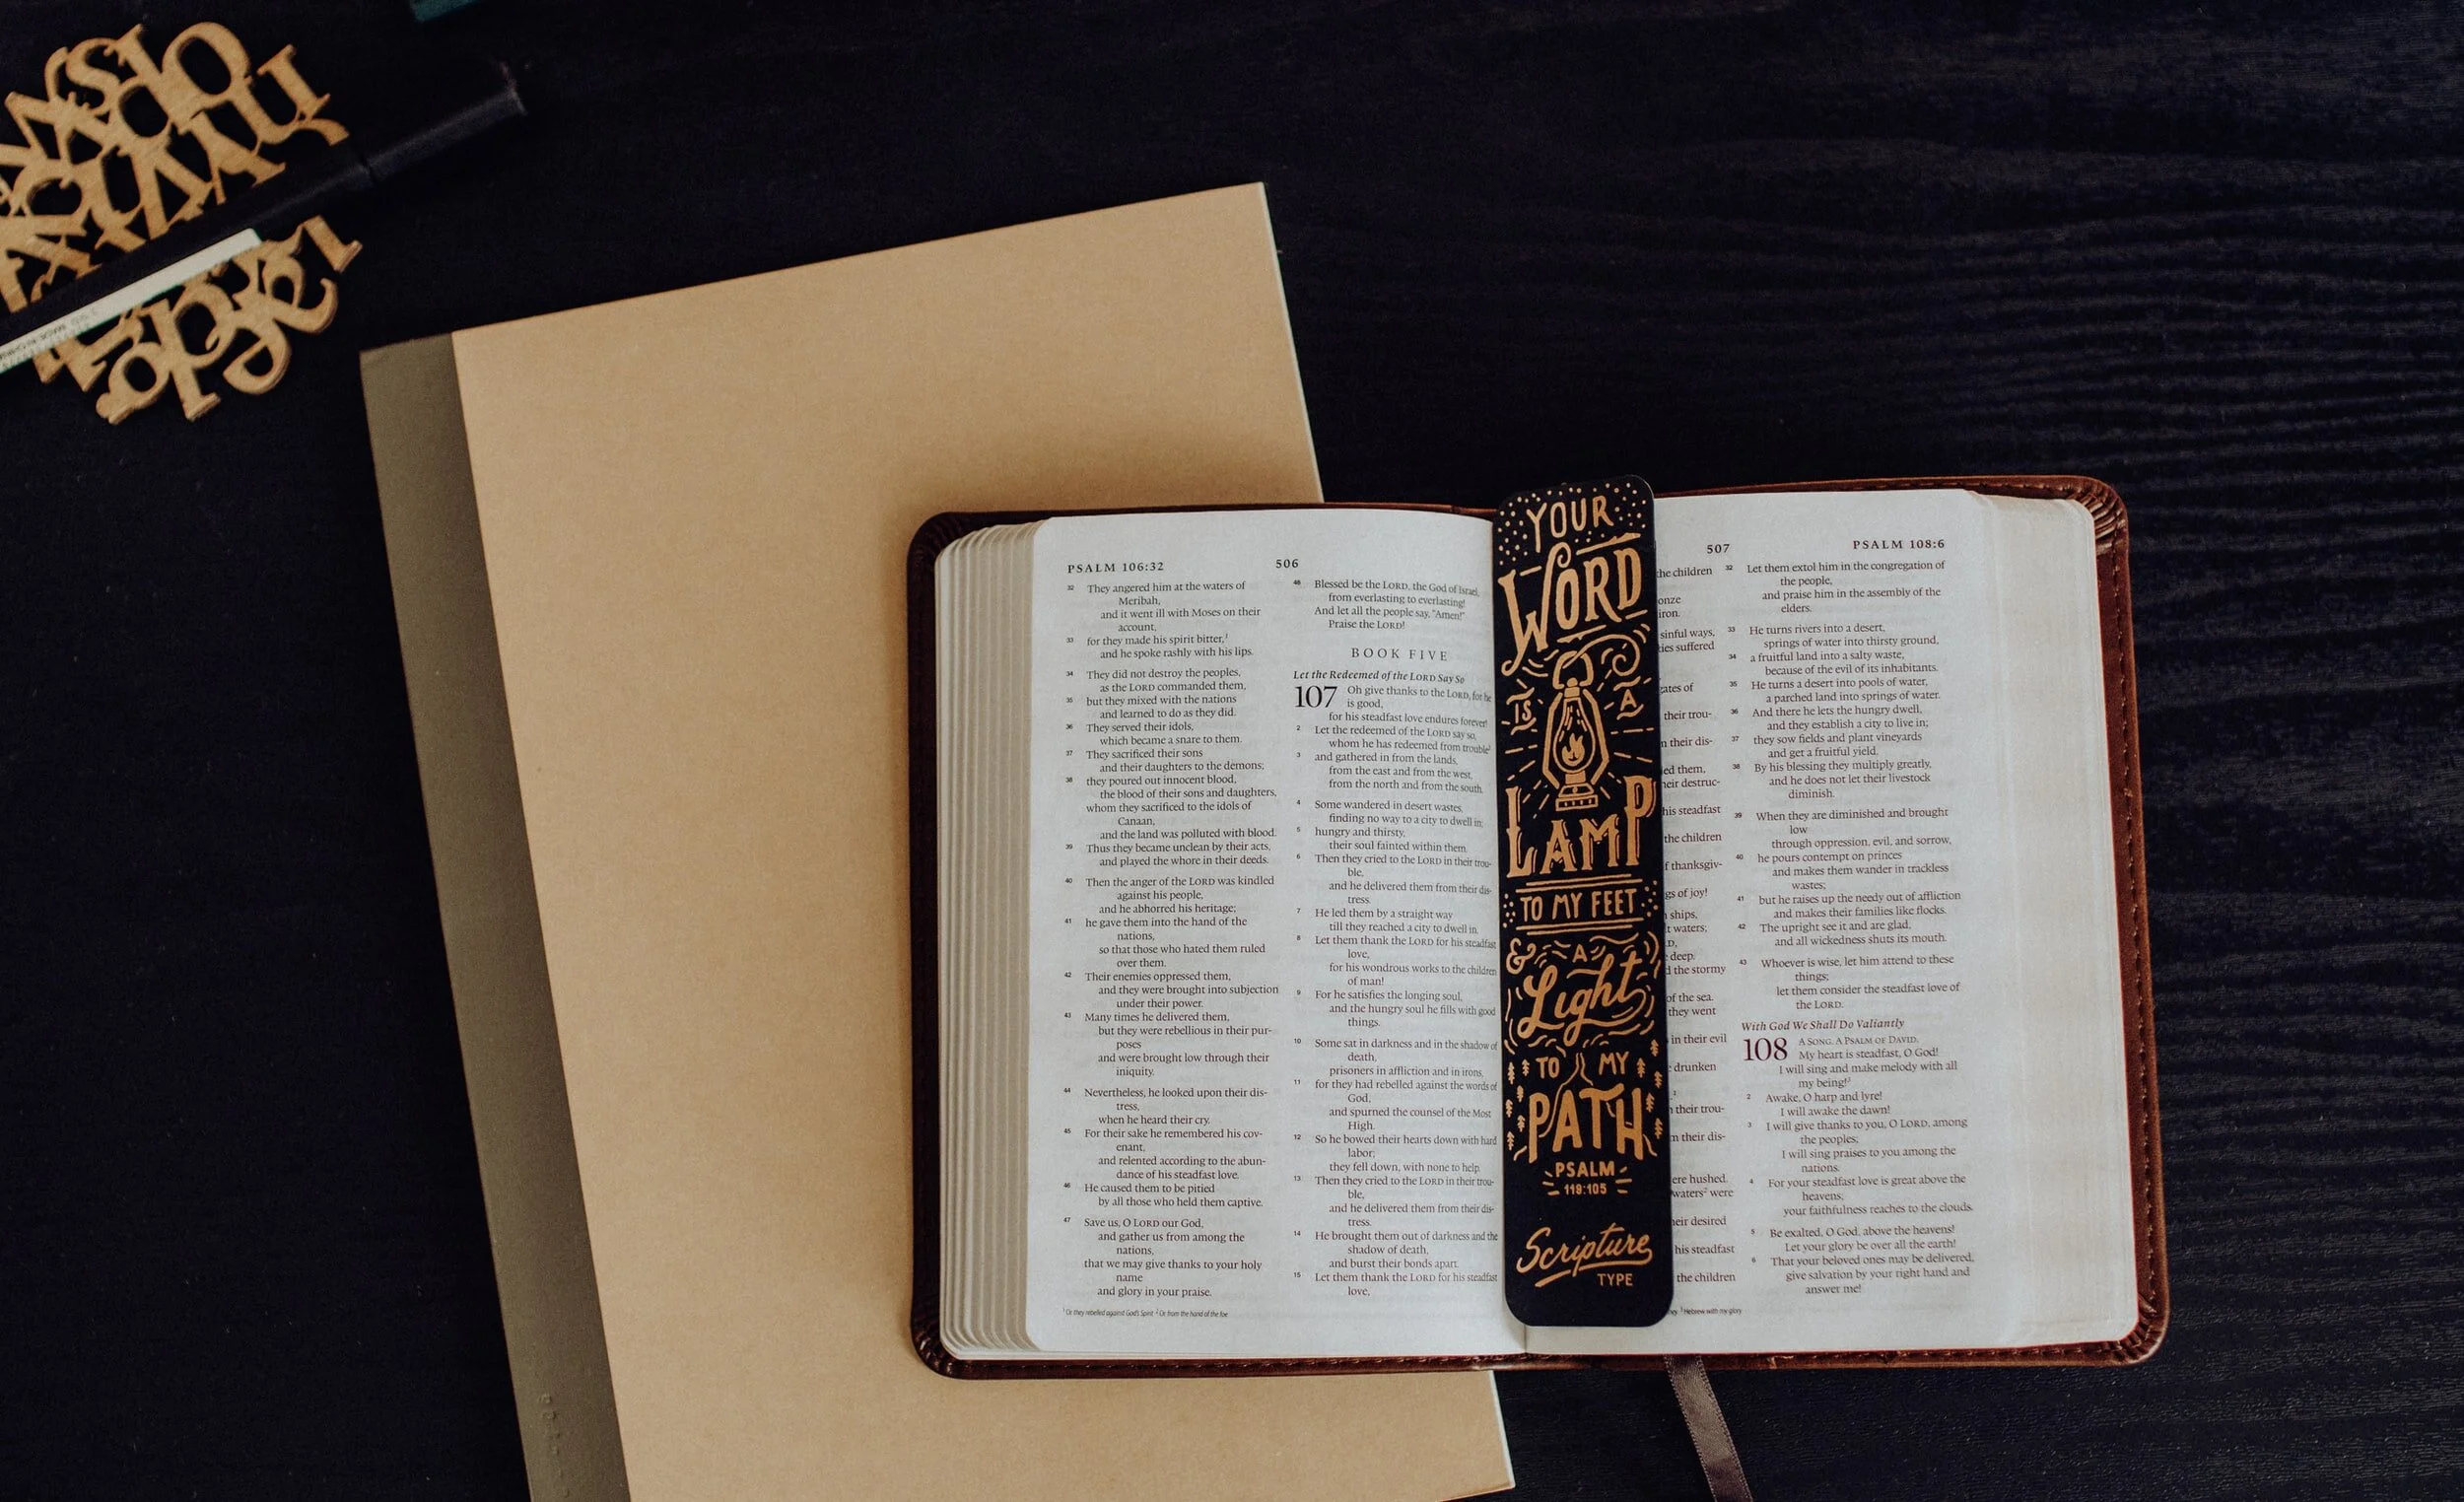 PSALM 106:32
506
32 They angered him at the waters of
Meribah,
and it went ill with Moses on their
account,
33 for they made his spirit bitter,1
and he spoke rashly with his lips.
34 They did not destroy the peoples,
as the LORD commanded them,
35 but they mixed with the nations
and learned to do as they did.
36 They served their idols,
which became a snare to them.
37 They sacrificed their sons
and their daughters to the demons;
38 they poured out innocent blood,
the blood of their sons and daughters,
whom they sacrificed to the idols of
Canaan,
and the land was polluted with blood.
39 Thus they became unclean by their acts,
and played the whore in their deeds.
40 Then the anger of the LORD was kindled
against his people,
and he abhorred his heritage;
41 he gave them into the hand of the
nations,
so that those who hated them ruled
over them.
42 Their enemies oppressed them,
and they were brought into subjection
under their power.
43 Many times he delivered them,
but they were rebellious in their pur-
poses
and were brought low through their
iniquity.
44 Nevertheless, he looked upon their dis-
tress,
when he heard their cry.
45 For their sake he remembered his cov-
enant,
and relented according to the abun-
dance of his steadfast love.
46 He caused them to be pitied
by all those who held them captive.
47 Save us, O LORD our God,
and gather us from among the
nations,
that we may give thanks to your holy
name
and glory in your praise.
1 Or they rebelled against God's Spirit 2 Or from the hand of the foe
48 Blessed be the LORD, the God of Israel,
from everlasting to everlasting!
And let all the people say, "Amen!"
Praise the LORD!
BOOK FIVE
Let the Redeemed of the LORD Say So
107 Oh give thanks to the LORD, for he
is good,
for his steadfast love endures forever!
2 Let the redeemed of the LORD say so,
whom he has redeemed from trouble2
3 and gathered in from the lands,
from the east and from the west,
from the north and from the south.
4 Some wandered in desert wastes,
finding no way to a city to dwell in;
5 hungry and thirsty,
their soul fainted within them.
6 Then they cried to the LORD in their trou-
ble,
and he delivered them from their dis-
tress.
7 He led them by a straight way
till they reached a city to dwell in.
8 Let them thank the LORD for his steadfast
love,
for his wondrous works to the children
of man!
9 For he satisfies the longing soul,
and the hungry soul he fills with good
things.
10 Some sat in darkness and in the shadow of
death,
prisoners in affliction and in irons,
11 for they had rebelled against the words of
God,
and spurned the counsel of the Most
High.
12 So he bowed their hearts down with hard
labor;
they fell down, with none to help.
13 Then they cried to the LORD in their trou-
ble,
and he delivered them from their dis-
tress.
14 He brought them out of darkness and the
shadow of death,
and burst their bonds apart.
15 Let them thank the LORD for his steadfast
love,
YOUR
WORD
IS A
LAMP
TO MY FEET
& A
Light
TO MY
PATH
PSALM
119:105
Scripture
TYPE
507
PSALM 108:6
the children
iron.
sinful ways,
suffered
of
their trou-
their dis-
them,
destruc-
his steadfast
the children
thanksgiv-
of joy!
ships,
waters;
deep.
the stormy
of the sea.
they went
in their evil
drunken
their trou-
their dis-
hushed.
waters2 were
desired
his steadfast
the children
3 Hebrew with my glory
32 Let them extol him in the congregation of
the people,
and praise him in the assembly of the
elders.
33 He turns rivers into a desert,
springs of water into thirsty ground,
34 a fruitful land into a salty waste,
because of the evil of its inhabitants.
35 He turns a desert into pools of water,
a parched land into springs of water.
36 And there he lets the hungry dwell,
and they establish a city to live in;
37 they sow fields and plant vineyards
and get a fruitful yield.
38 By his blessing they multiply greatly,
and he does not let their livestock
diminish.
39 When they are diminished and brought
low
through oppression, evil, and sorrow,
40 he pours contempt on princes
and makes them wander in trackless
wastes;
41 but he raises up the needy out of affliction
and makes their families like flocks.
42 The upright see it and are glad,
and all wickedness shuts its mouth.
43 Whoever is wise, let him attend to these
things;
let them consider the steadfast love of
the LORD.
With God We Shall Do Valiantly
108 A SONG. A PSALM OF DAVID.
My heart is steadfast, O God!
I will sing and make melody with all
my being!3
2 Awake, O harp and lyre!
I will awake the dawn!
3 I will give thanks to you, O LORD, among
the peoples;
I will sing praises to you among the
nations.
4 For your steadfast love is great above the
heavens;
your faithfulness reaches to the clouds.
5 Be exalted, O God, above the heavens!
Let your glory be over all the earth!
6 That your beloved ones may be delivered,
give salvation by your right hand and
answer me!